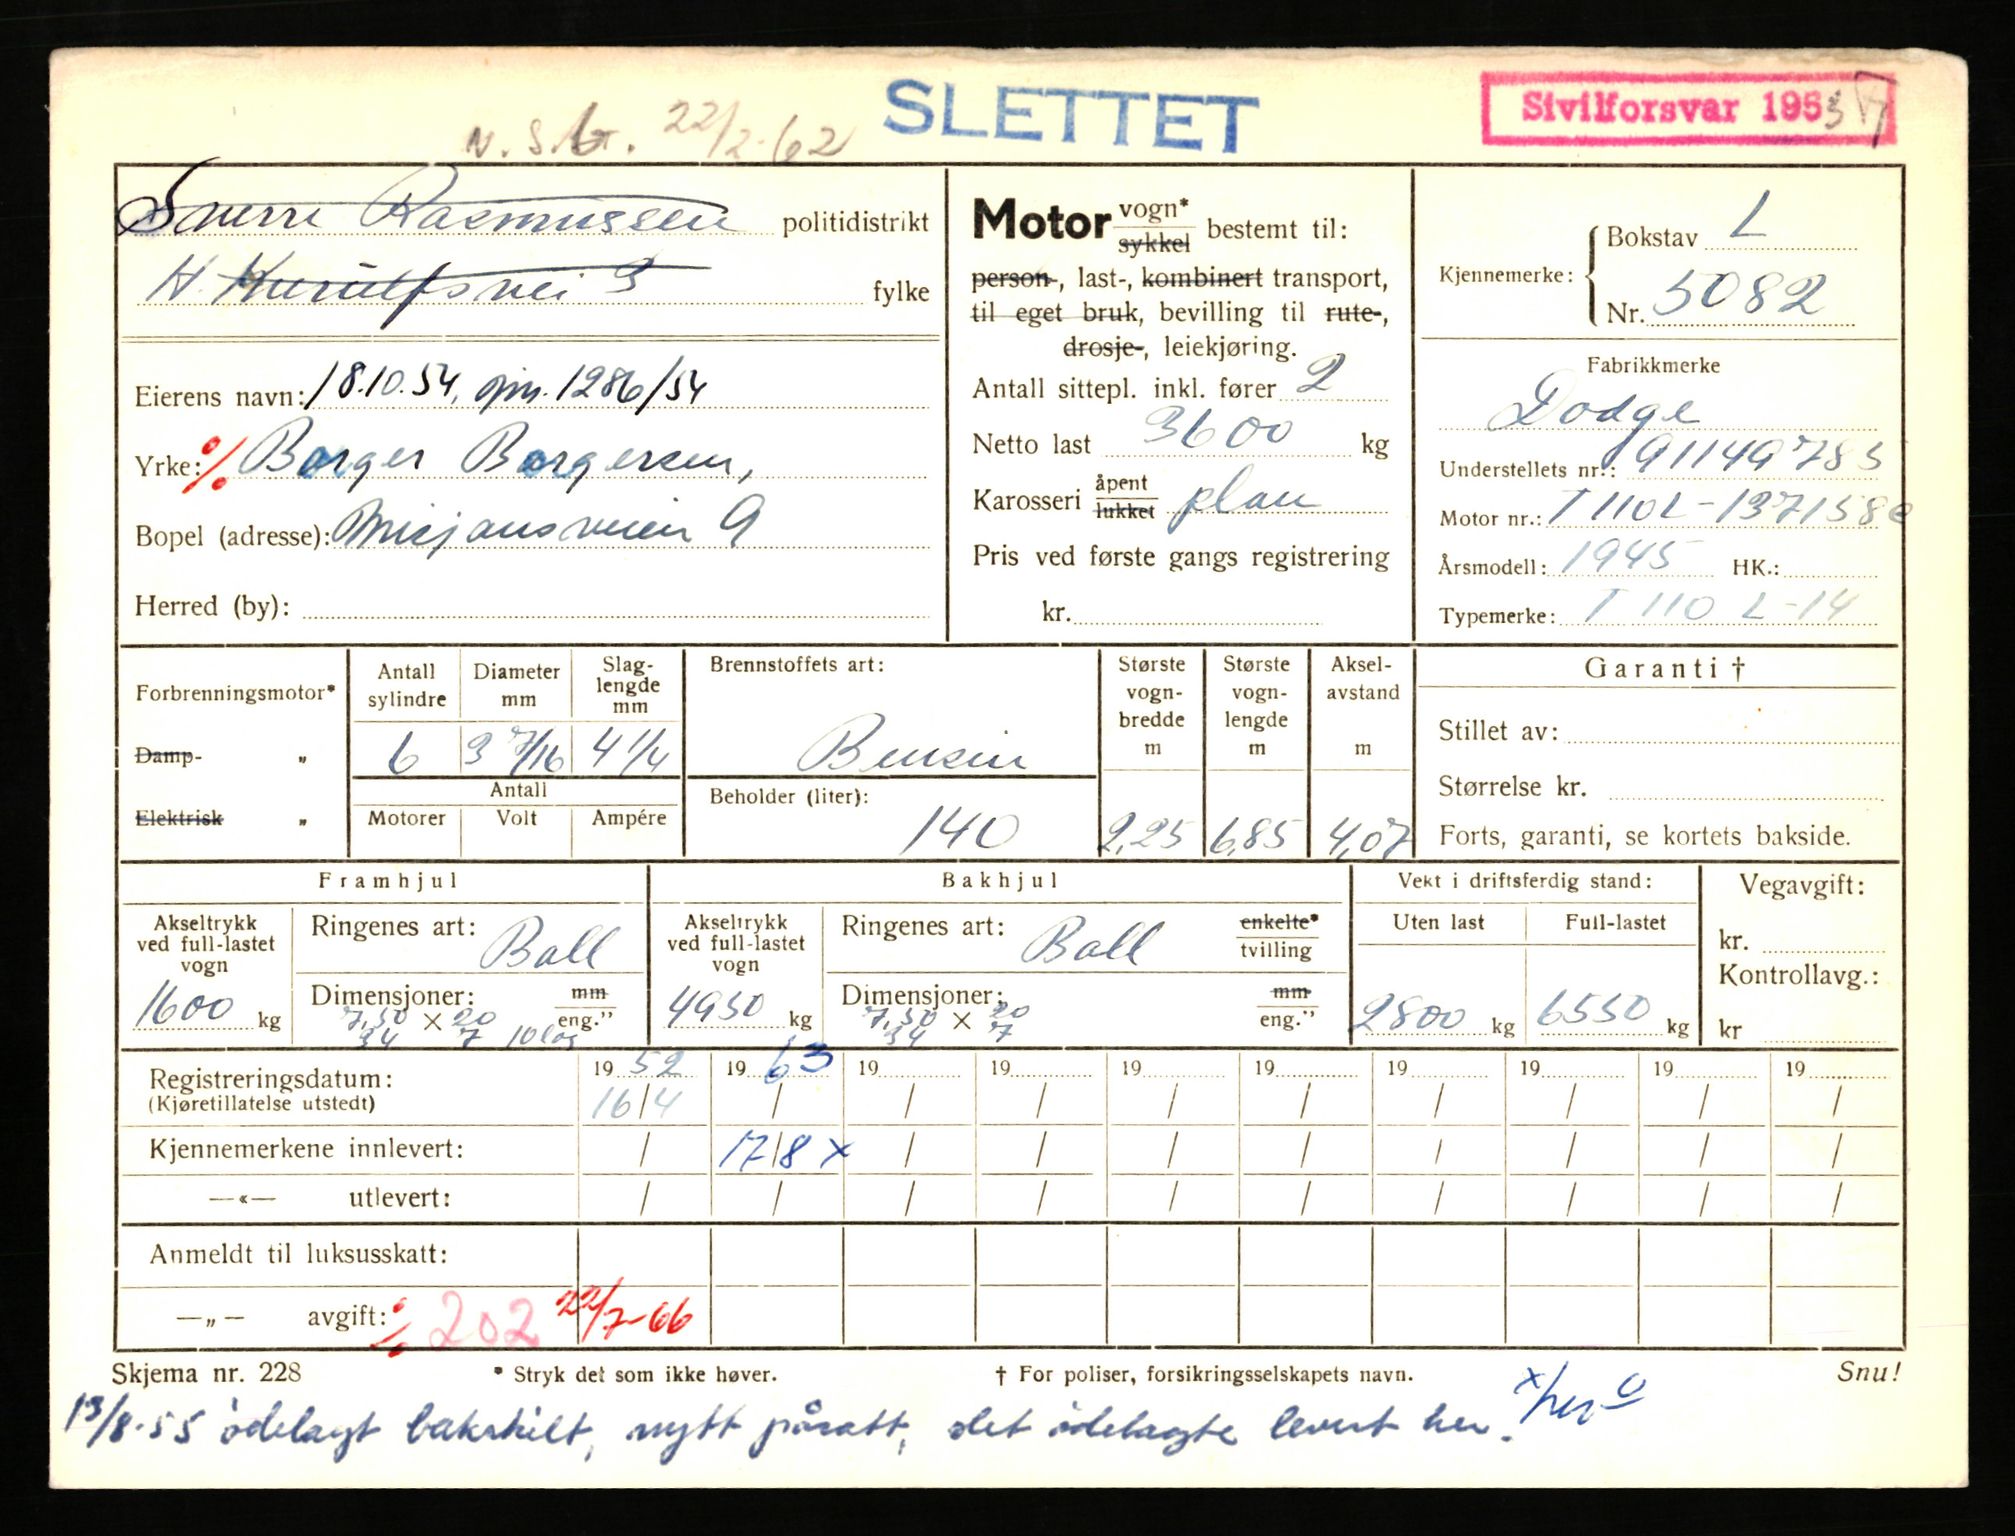 N. S. G. 22/2-62 SLETTET Sivilforsvar 1953
Sverre Rasmussen politidistrikt
fylke
Eierens navn: 18.10.54, 1286/54
Yrke: % Borger Borgersen,
Bopel (adresse): Misjonsveien 9
Herred (by):
Motor vogn* sykkel bestemt til:
person-, last-, kombinert transport,
til eget bruk, bevilling til rute-,
drosje-, leiekjøring.
Antall sittepl. inkl. fører 2
Netto last 3600 kg
Karosseri åpent lukket plan
Pris ved første gangs registrering
kr.
Kjennemerke: Bokstav L
Nr. 5082
Fabrikkmerke
Dodge
Understellets nr.: 91149785
Motor nr.: T 110L-137158
Årsmodell: 1945 HK.:
Typemerke: T 110 L-14
Forbrenningsmotor*
Damp- „
Elektrisk „
Antall sylindre 6
Diameter mm 3 7/16
Slag-lengde mm 4 1/4
Antall
Motorer Volt Ampére
Brennstoffets art:
Bensin
Beholder (liter):
140
Største vogn-bredde m 2,25
Største vogn-lengde m 6,85
Aksel-avstand m 4,07
Garanti †
Stillet av:
Størrelse kr.
Forts, garanti, se kortets bakside.
Framhjul
Akseltrykk ved full-lastet vogn 1600 kg
Ringenes art: Ball
Dimensjoner: mm eng."
7,50 × 20
34 7 10 lag
Bakhjul
Akseltrykk ved full-lastet vogn 4950 kg
Ringenes art: Ball enkelte* tvilling
Dimensjoner: mm eng."
7,50 × 20
34 7
Vekt i driftsferdig stand:
Uten last Full-lastet
2800 kg 6550 kg
Vegavgift:
kr.
Kontrollavg.:
kr
Registreringsdatum: 1952 1963 19 19 19 19 19 19 19 19
(Kjøretillatelse utstedt) 16/4 / / / / / / / / /
Kjennemerkene innlevert: / 17/8 x / / / / / / / /
—«— utlevert: / / / / / / / / / /
Anmeldt til luksusskatt:
—„— avgift: % 202 22/7-66
Skjema nr. 228 * Stryk det som ikke høver. † For poliser, forsikringsselskapets navn. Snu!
13/8-55 ødelagt bakskilt, nytt påsatt, det ødelagte levert her. x/her